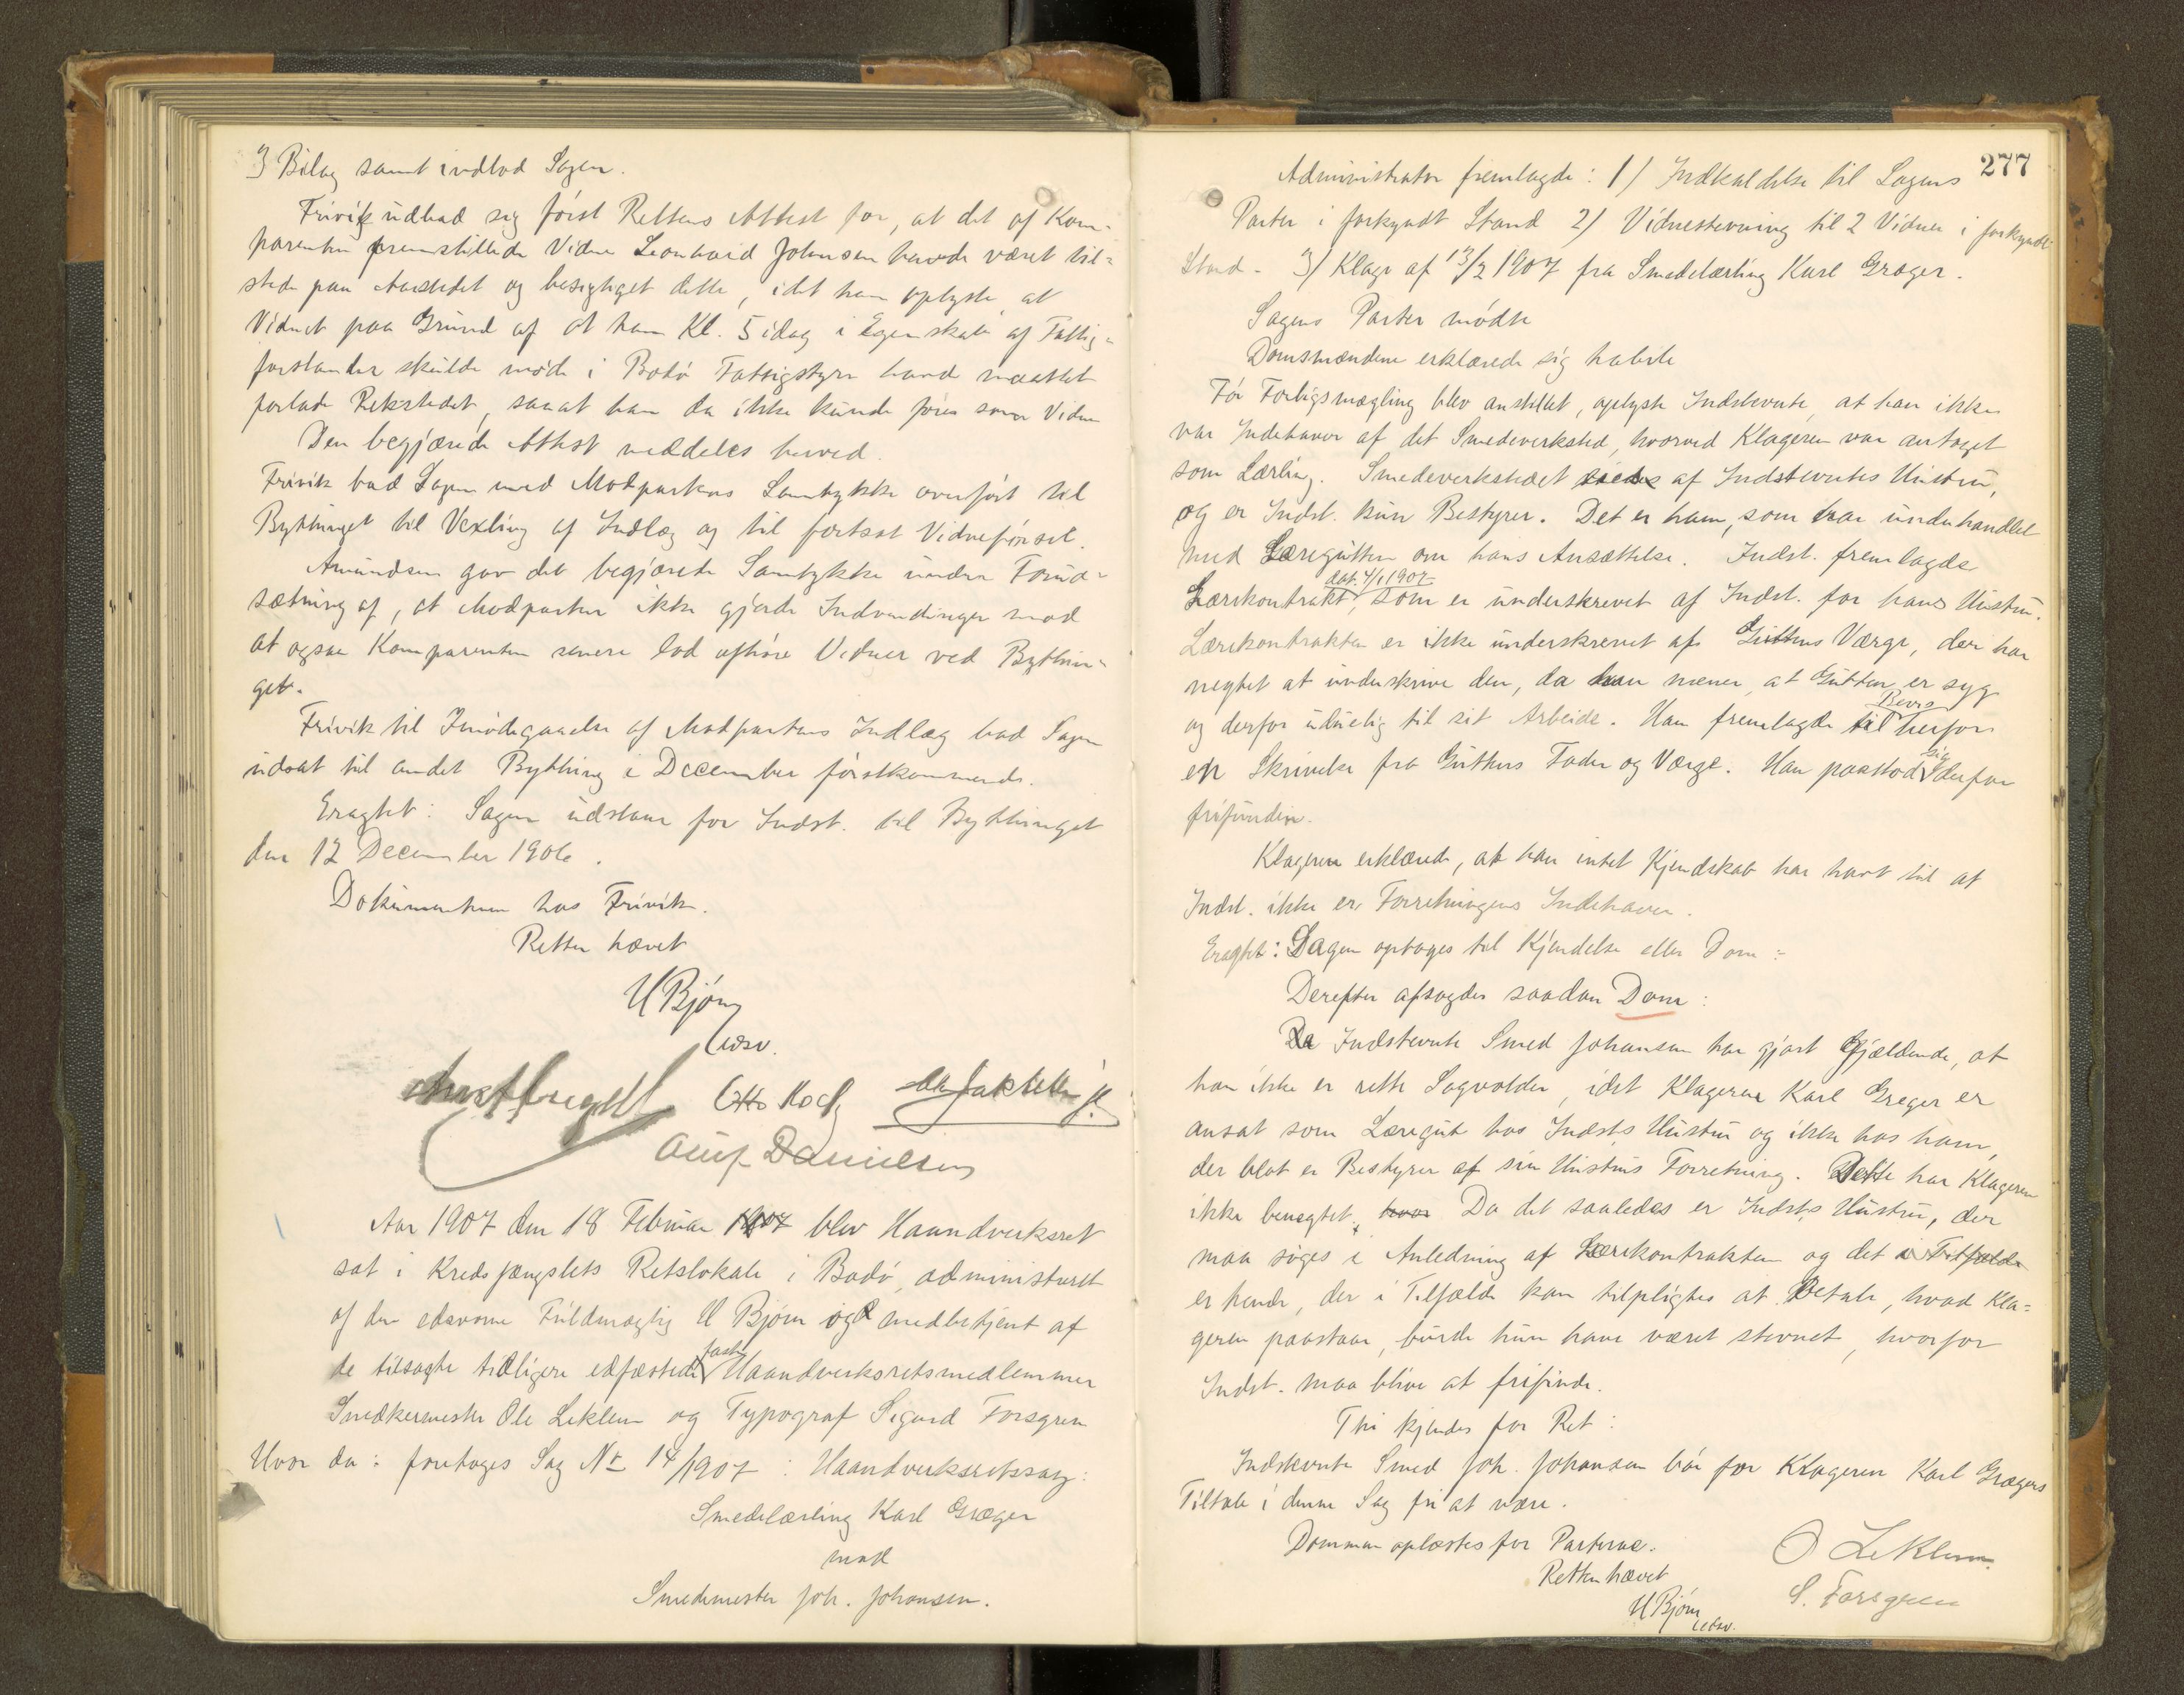 3 Bilag samt indlod Sagen.
Frivik udbad sig først Rettens Attest for, at det af Kom-
parenten fremstillede Vidne Leonhard Johnsen havde været til-
stede paa Aastedet og besigtiget dette, idet han oplyste, at
Vidnet paa Grund af at han Kl. 5 idag i Egenskab af Fattig-
forstander skulde møde i Bodø Fattigstyre havde maattet
forlade Retsstedet, saaat han da ikke kunde føres som Vidne
Den begjærede Attest meddeles herved.
Frivik bad Sagen med Modpartens Samtykke overført til
Bythinget til Vexling af Indlæg og til fortsat Vidneførsel.
Amundsen gav det begjærede Samtykke under Forud-
sætning af, at Modparten ikke gjorde Indvendinger mod
at ogsaa Komparenten senere lod afhøre Vidner ved Bythin-
get.
Frivik til Imødegaaelse af Modpartens Indlæg bad Sagen
udsat til andet Bything i December førstkommende.
Eragtet: Sagen udstaar for Indst. til Bythinget
den 12 December 1906.
Dokumenterne hos Frivik.
Retten hævet
U Bjørn
edsv.
Otto Koch
Oluf Danielsen
Aar 1907 den 18 Februar 1907 blev Haandverksret
sat i Kredsfængslets Retslokale i Bodø, administreret
af den edsvorne Fuldmægtig U Bjørn og medbetjent af
de tilsagte tidligere edfæstede faste Haandverksretsmedlemmer
Snedkermester Ole Leklem og Typograf Sigurd Forsgren
Hvor da: foretoges Sag No 14/1907: Haandverksretssag:
Smedelærling Karl Græger
mod
Smedemester Joh. Johansen.
277
Administrator fremlagde: 1) Indkaldelse til Sagens
Parter i forkyndt Stand 2) Vidnestevning til 2 Vidner i forkyndt
Stand - 3) Klage af 13/2 1907 fra Smedelærling Karl Græger.
Sagens Parter mødte
Domsmændene erklærede sig habile
Før Forligsmægling blev anstillet, oplyste Indstevnte, at han ikke
var Indehaver af det Smedeverksted, hvorved Klageren var antaget
som Lærling. Smedeverkstedet af Indstevntes Hustru,
og er Indst. kun Bestyrer. Det er ham, som har underhandlet
med Læregutten om hans Ansættelse. Indst. fremlagde
Lærekontrakt, dat. 4/1 1907 som er underskrevet af Indst. for hans Hustru.
Lærekontrakten er ikke underskrevet af Guttens Værge, der har
negtet at underskrive den, da han mener, at Gutten er syg
og derfor uduelig til sit Arbeide. Han fremlagde til Bevis herfor
en Skrivelse fra Guttens Fader og Værge. Han paastod sig derfor
frifunden.
Klageren erklærede, at han intet Kjendskab har havt til at
Indst. ikke er Forretningens Indehaver.
Eragtet: Sagen optages til Kjendelse eller Dom:
Derefter afsagdes saadan Dom:
Da Indstevnte Smed Johansen har gjort Gjældende, at
han ikke er rette Sagvolder, idet Klageren Karl Greger er
ansat som Læregut hos Indsts Hustru og ikke hos ham,
der blot er Bestyrer af sin Hustrus Forretning. Dette har Klageren
ikke benegtet. hvor Da det saaledes er Indsts Hustru, der
maa søges i Anledning af Lærekontrakten og det i Tilfælde
er hende, der i Tilfælde kan tilpligtes at Betale, hvad Kla-
geren paastaar, burde hun have været stevnet, hvorfor
Indst. maa blive at frifinde.
Thi kjendes for Ret:
Indstevnte Smed Joh. Johansen bør for Klageren Karl Grægers
Tiltale i denne Sag fri at være.
Dommen oplæstes for Parterne.
Retten hævet
U Bjørn
edsv.
O Leklem
S. Forsgren